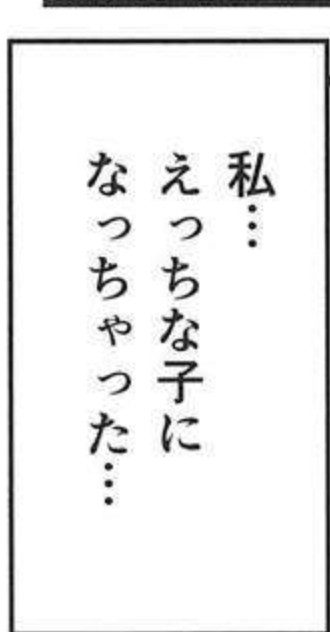 私…
えっちな子に
なっちゃった…